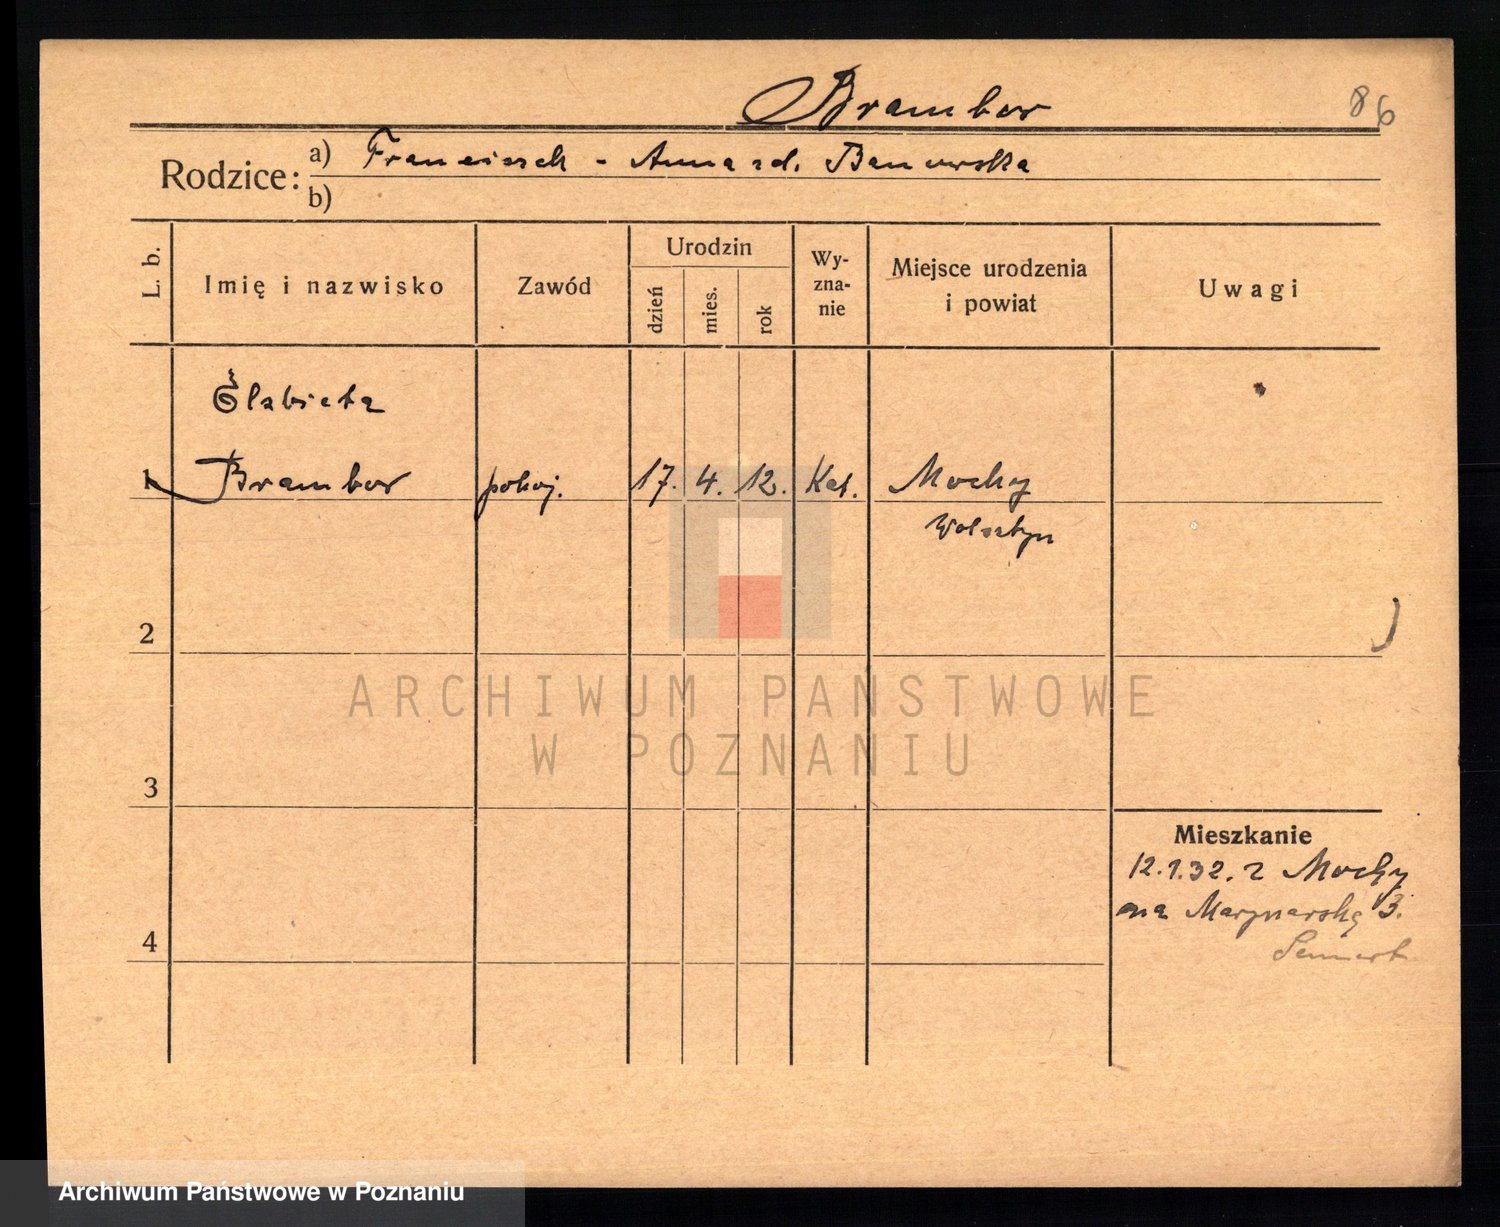 Brambor
86
Rodzice: a) Franciszek - Anna zd. Banowska
b)
L. b.
Imię i nazwisko
Zawód
Urodzin
dzień
mies.
rok
Wy-
zna-
nie
Miejsce urodzenia
i powiat
Uwagi
Elżbieta
1 Brambor pokoj. 17. 4. 12. Kat. Mochy
Wolsztyn
2
3
4
Mieszkanie
12.1.32. z Mochy
na Marynarską 3.
ARCHIWUM PAŃSTWOWE
W POZNANIU
Archiwum Państwowe w Poznaniu